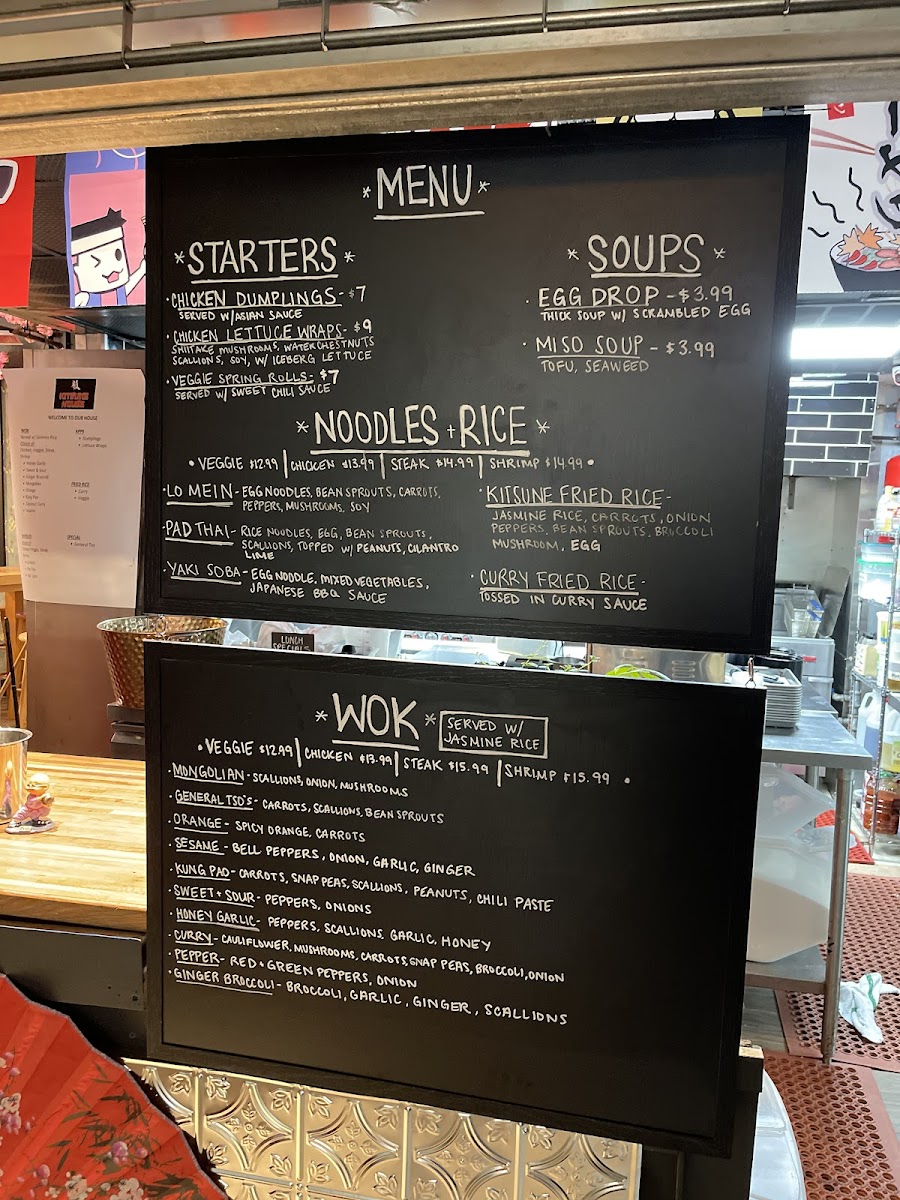 *MENU*
*STARTERS*
·CHICKEN DUMPLINGS-$7
SERVED W/ASIAN SAUCE
·CHICKEN LETTUCE WRAPS-$9
SHIITAKE MUSHROOMS, WATERCHESTNUTS
SCALLIONS, SOY, W/ ICEBERG LETTUCE
·VEGGIE SPRING ROLLS-$7
SERVED W/ SWEET CHILI SAUCE
*SOUPS*
·EGG DROP-$3.99
THICK SOUP W/ SCRAMBLED EGG
·MISO SOUP-$3.99
TOFU, SEAWEED
*NOODLES+RICE*
•VEGGIE $12.99|CHICKEN $13.99|STEAK $14.99|SHRIMP $14.99•
·LO MEIN-EGG NOODLES, BEAN SPROUTS, CARROTS,
PEPPERS, MUSHROOMS, SOY
·PAD THAI-RICE NOODLES, EGG, BEAN SPROUTS,
SCALLIONS, TOPPED W/ PEANUTS, CILANTRO
LIME
·YAKI SOBA-EGG NOODLE, MIXED VEGETABLES,
JAPANESE BBQ SAUCE
·KITSUNE FRIED RICE-
JASMINE RICE, CARROTS, ONION
PEPPERS, BEAN SPROUTS, BROCCOLI
MUSHROOM, EGG
·CURRY FRIED RICE-
TOSSED IN CURRY SAUCE
WELCOME TO OUR HOUSE
LUNCH
SPECIALS
*WOK*
SERVED W/
JASMINE RICE
•VEGGIE $12.99|CHICKEN $13.99|STEAK $15.99|SHRIMP $15.99•
·MONGOLIAN-SCALLIONS, ONION, MUSHROOMS
·GENERAL TSO'S-CARROTS, SCALLIONS, BEAN SPROUTS
·ORANGE-SPICY ORANGE, CARROTS
·SESAME-BELL PEPPERS, ONION, GARLIC, GINGER
·KUNG PAO-CARROTS, SNAP PEAS, SCALLIONS, PEANUTS, CHILI PASTE
·SWEET+SOUR-PEPPERS, ONIONS
·HONEY GARLIC-PEPPERS, SCALLIONS, GARLIC, HONEY
·CURRY-CAULIFLOWER, MUSHROOMS, CARROTS, SNAP PEAS, BROCCOLI, ONION
·PEPPER-RED+GREEN PEPPERS, ONION
·GINGER BROCCOLI-BROCCOLI, GARLIC, GINGER, SCALLIONS